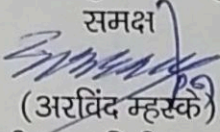 समक्ष
(अरविंद म्हस्के)